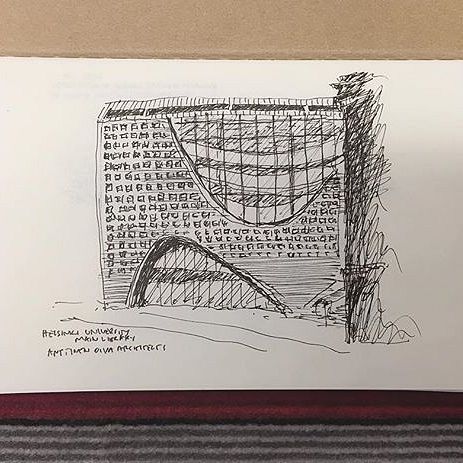 HELSINKI UNIVERSITY
MAIN LIBRARY
ANTTINEN OIVA ARCHITECTS